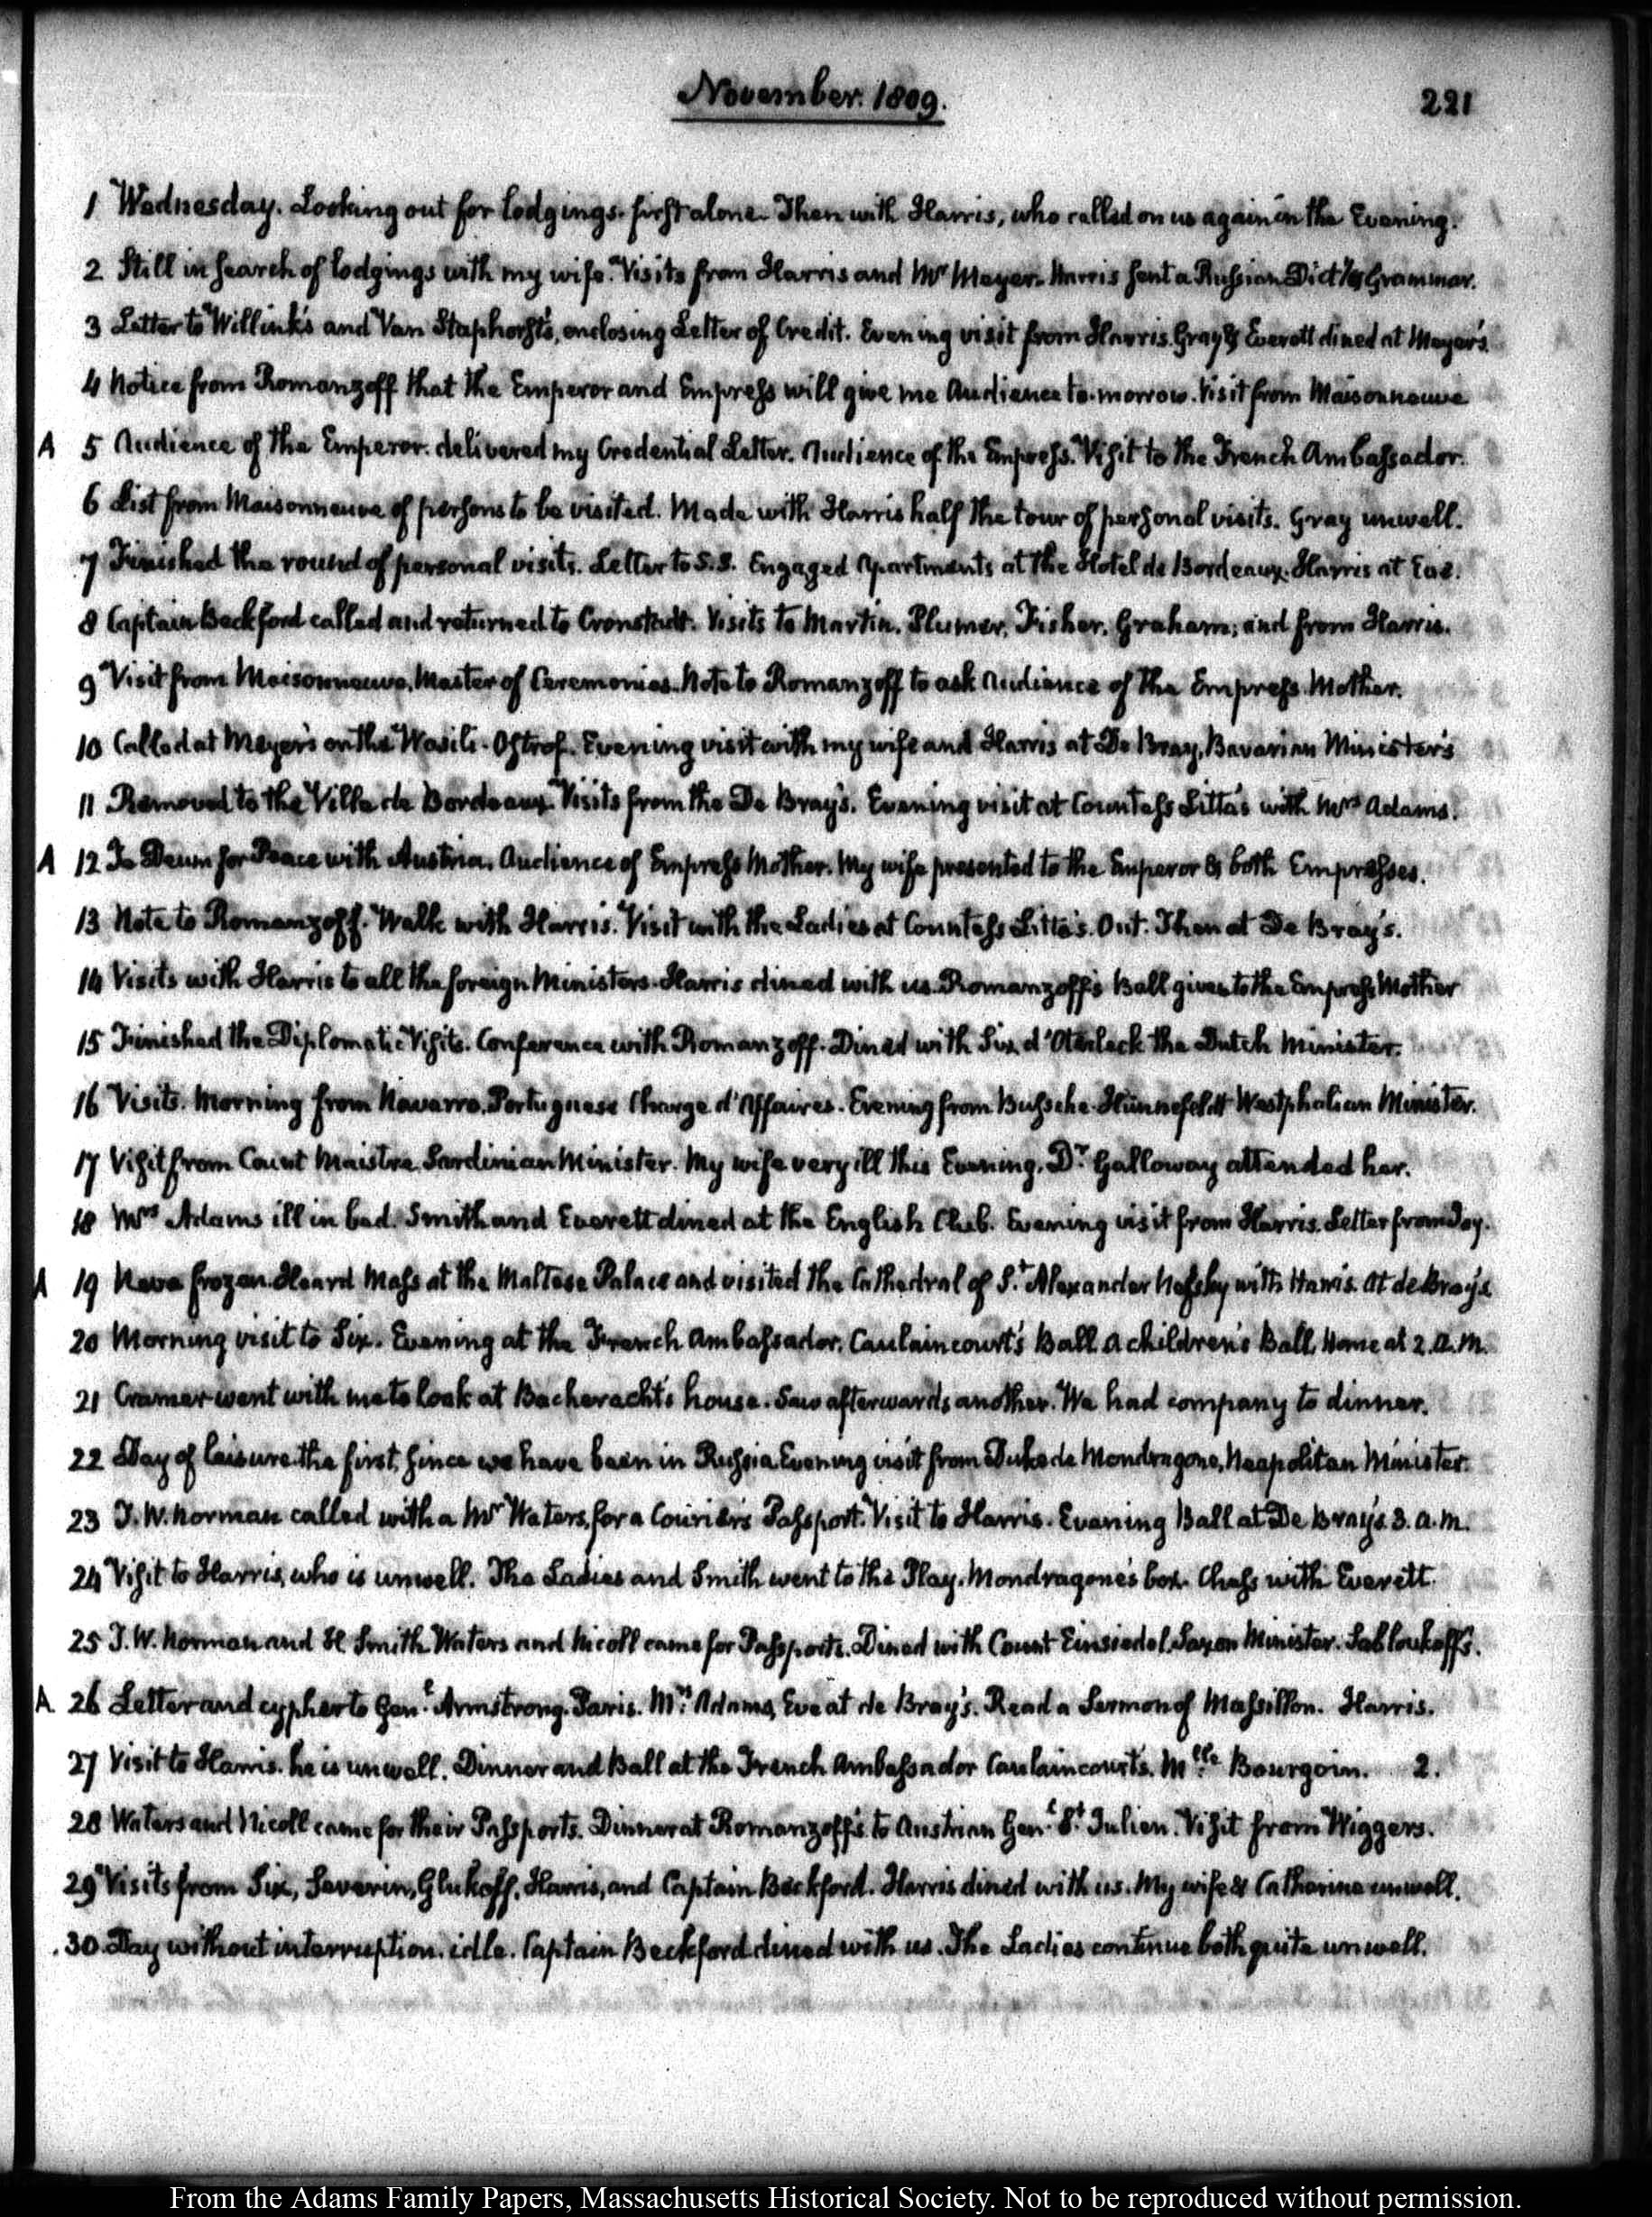 November. 1809.
221
1 Wednesday. Looking out for lodgings. first alone. Then with Harris, who called on us again in the Evening.
2 Still in search of lodgings with my wife. Visits from Harris and Mr Meyer. Harris sent a Russian Dicty & Grammar.
3 Letter to Willink's and Van Staphorst's, enclosing Letter of Credit. Evening visit from Harris. Gray & Everett dined at Meyer's.
4 Notice from Romanzoff that the Emperor and Empress will give me Audience to-morrow. Visit from Maisonneuve
A 5 Audience of the Emperor. delivered my Credential Letter. Audience of the Empress. Visit to the French Ambassador.
6 List from Maisonneuve of persons to be visited. Made with Harris half the tour of personal visits. Gray unwell.
7 Finished the round of personal visits. Letter to S.S. Engaged Apartments at the Hotel de Bordeaux. Harris at Eve.
8 Captain Beckford called and returned to Cronstadt. Visits to Martin, Plumer, Fisher, Graham; and from Harris.
9 Visit from Maisonneuve, Master of Ceremonies. Note to Romanzoff to ask Audience of the Empress Mother.
10 Called at Meyer's on the Wasili-Ostrof. Evening visit with my wife and Harris at De Bray, Bavarian Minister's
11 Removed to the Ville de Bordeaux. Visits from the De Bray's. Evening visit at Countess Litta's with Mrs Adams.
A 12 Te Deum for Peace with Austria. Audience of Empress Mother. My wife presented to the Emperor & both Empresses.
13 Note to Romanzoff. Walk with Harris. Visit with the Ladies at Countess Litta's. Out. Then at De Bray's.
14 Visits with Harris to all the foreign Ministers. Harris dined with us. Romanzoff's Ball given to the Empress Mother
15 Finished the Diplomatic Visits. Conference with Romanzoff. Dined with Six, d'Oterleek the Dutch Minister.
16 Visits. Morning from Navarro, Portuguese Charge d'Affaires. Evening from Bussche-Hünnefeldt Westphalian Minister.
17 Visit from Count Maistre Sardinian Minister. My wife very ill this Evening. Dr Galloway attended her.
18 Mrs Adams ill in bed. Smith and Everett dined at the English Club. Evening visit from Harris. Letter from Joy.
A 19 Neva frozen. Heard Mass at the Maltese Palace and visited the Cathedral of St Alexander Nefsky with Harris. At de Bray's
20 Morning visit to Six. Evening at the French Ambassador, Caulaincourt's Ball. a children's Ball, Home at 2. a.m.
21 Cramer went with me to look at Bacheracht's house. Saw afterwards another. We had company to dinner.
22 Day of leisure. the first, since we have been in Russia. Evening visit from Duke de Mondragone, Neapolitan Minister.
23 J. W. Norman called with a Mr Waters, for a Courier's Passport. Visit to Harris. Evening Ball at De Bray's. 3. a.m.
24 Visit to Harris, who is unwell. The Ladies and Smith went to the Play. Mondragone's box. Chess with Everett.
25 J. W. Norman and H. Smith. Waters and Nicoll came for Passports. Dined with Count Einsiedel, Saxon Minister. Sabloukoff's.
A. 26 Letter and cypher to Genl Armstrong. Paris. Mrs Adams, Eve at de Bray's. Read a Sermon of Massillon. Harris.
27 Visit to Harris. he is unwell. Dinner and Ball at the French Ambassador Caulaincourt's. Mlle Bourgoin. 2.
28 Waters and Nicoll came for their Passports. Dinner at Romanzoff's to Austrian Genl St Julien. Visit from Wiggers.
29 Visits from Six, Severin, Glukoff, Harris, and Captain Beckford. Harris dined with us. My wife & Catharine unwell.
30 Day without interruption. idle. Captain Beckford dined with us. The Ladies continue both quite unwell.
From the Adams Family Papers, Massachusetts Historical Society. Not to be reproduced without permission.